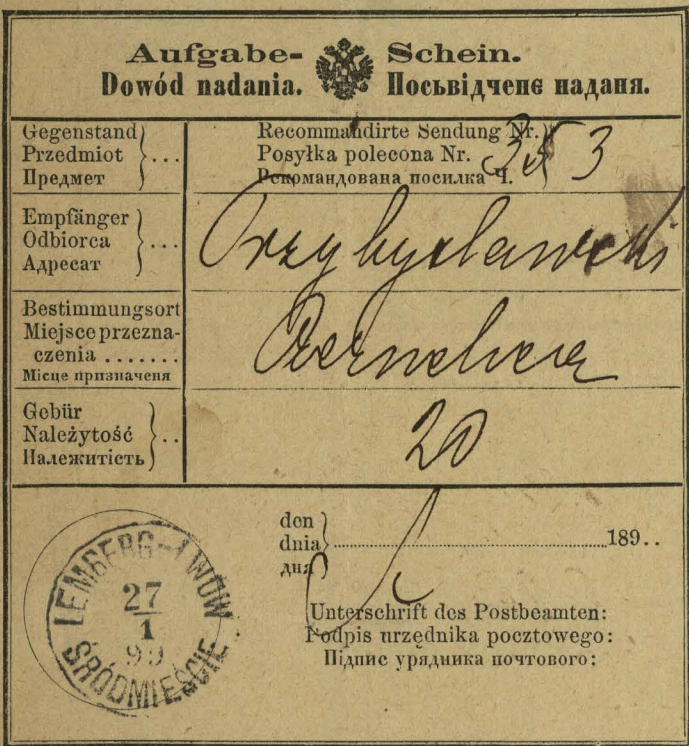 Aufgabe- Schein.
Dowód nadania. Посьвідченє наданя.
Gegenstand
Przedmiot ...
Предмет
Recommandirte Sendung Nr.
Posyłka polecona Nr. 353
Рекомандована посилка Ч.
Empfänger
Odbiorca ...
Адресат
Przybysławski
Bestimmungsort
Miejsce przezna-
czenia .......
Місце призначеня
Czernelica
Gebür
Należytość ..
Належитість
20
den
dnia 189..
дня
Unterschrift des Postbeamten:
Podpis urzędnika pocztowego:
Підпис урядника почтового:
LEMBERG-LWÓW
27
1
99
ŚRÓDMIEŚCIE